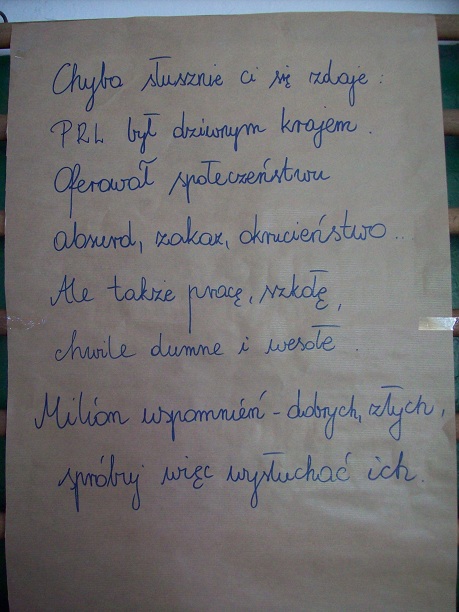 Chyba słusznie ci się zdaje:
PRL był dziwnym krajem.
Oferował społeczeństwu
absurd, zakaz, okrucieństwo...
Ale także pracę, szkołę,
chwile dumne i wesołe.
Milion wspomnień - dobrych, złych,
spróbuj więc wysłuchać ich.